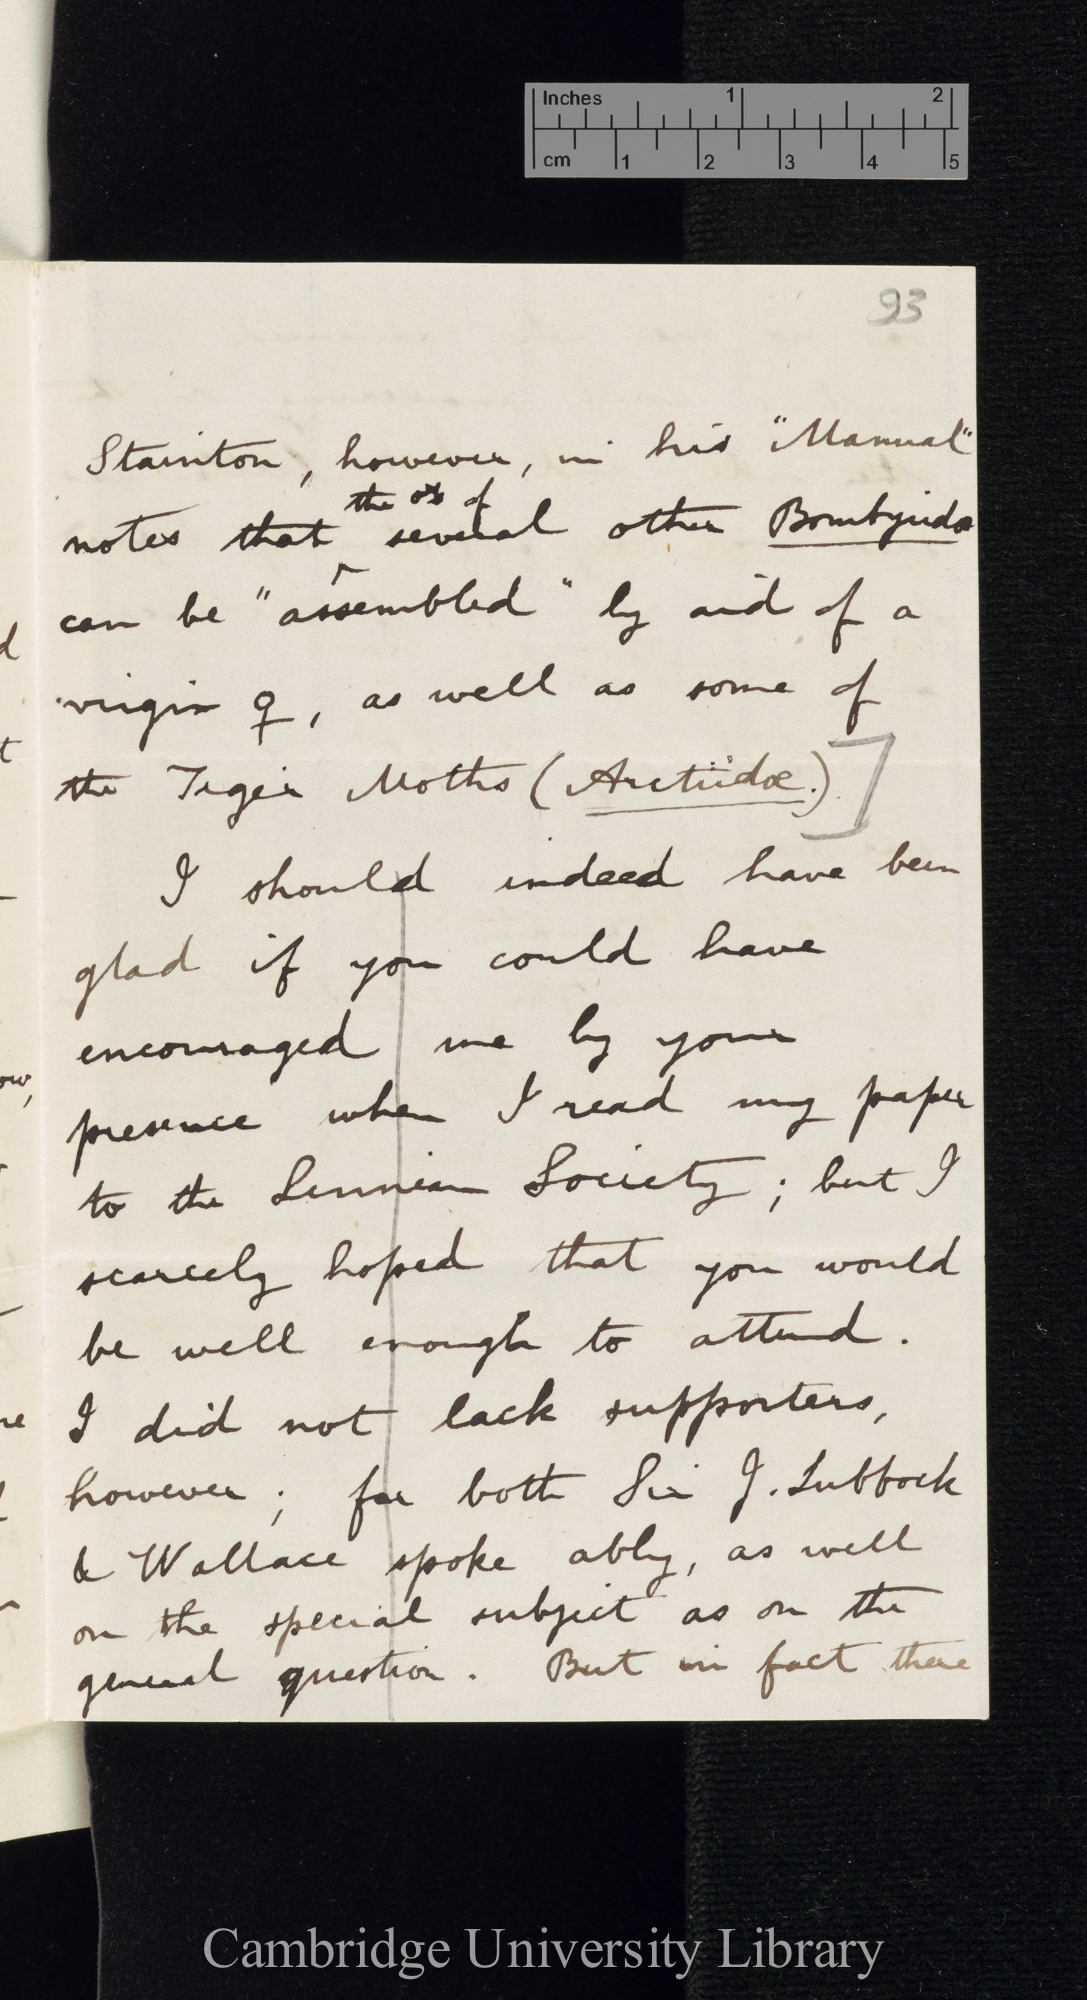 Inches 1 2
cm 1 2 3 4 5
93
Stainton, however, in his "Manual"
notes that the ♂s of several other Bombycidæ
can be "assembled" by aid of a
virgin ♀, as well as some of
the Tiger Moths (Arctiidæ.)]
I should indeed have been
glad if you could have
encouraged me by your
presence when I read my paper
to the Linnean Society; but I
scarcely hoped that you would
be well enough to attend.
I did not lack supporters,
however; for both Sir J. Lubbock
& Wallace spoke ably, as well
on the special subject as on the
general question. But in fact there
Cambridge University Library